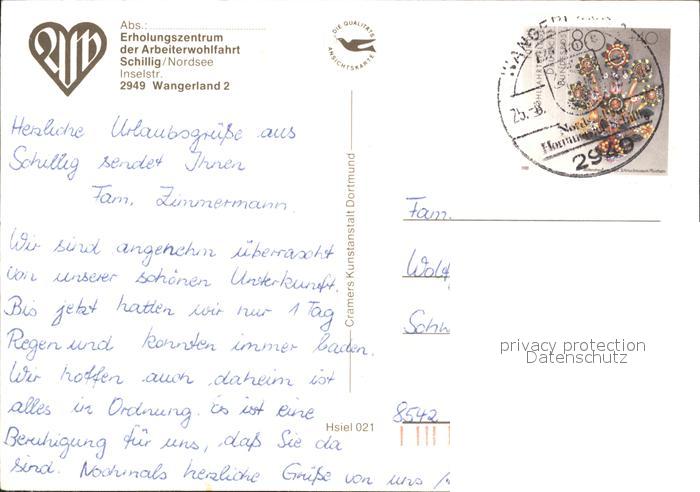 Abs.:
Erholungszentrum
der Arbeiterwohlfahrt
Schillig/Nordsee
Inselstr.
2949 Wangerland 2
DIE QUALITÄTS
ANSICHTSKARTE
80 40
25.-8.
2949
Herzliche Urlaubsgrüße aus
Schillig sendet Ihnen
Fam. Zimmermann.
Wir sind angenehm überrascht
von unserer schönen Unterkunft.
Bis jetzt hatten wir nur 1 Tag
Regen und konnten immer baden.
Wir hoffen auch daheim ist
alles in Ordnung. Es ist eine
Beruhigung für uns, daß Sie da
sind. Nochmals herzliche Grüße von uns
Cramers Kunstanstalt Dortmund
Hsiel 021
Fam.
Wolf
8542
privacy protection
Datenschutz